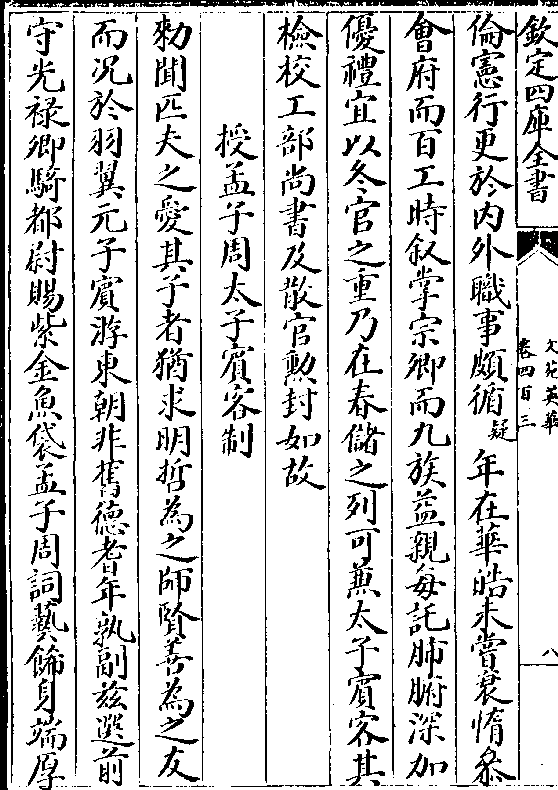 欽定四庫全書
文苑英華
卷四百三
八
倫憲行更於内外職事頗循疑年在華皓未嘗衰惰叅
㑹府而百工時叙掌宗卿而九族益親每託肺腑深加
優禮宜以冬官之重乃在春儲之列可兼太子賓客其
檢校工部尚書及散官勲封如故
授孟子周太子賓客制
勑聞匹夫之愛其子者猶求明哲為之師賢善為之友
而况於羽翼元子賓游東朝非舊德耆年孰副兹選前
守光禄卿騎都尉賜紫金魚袋孟子周詞藝飾身端厚